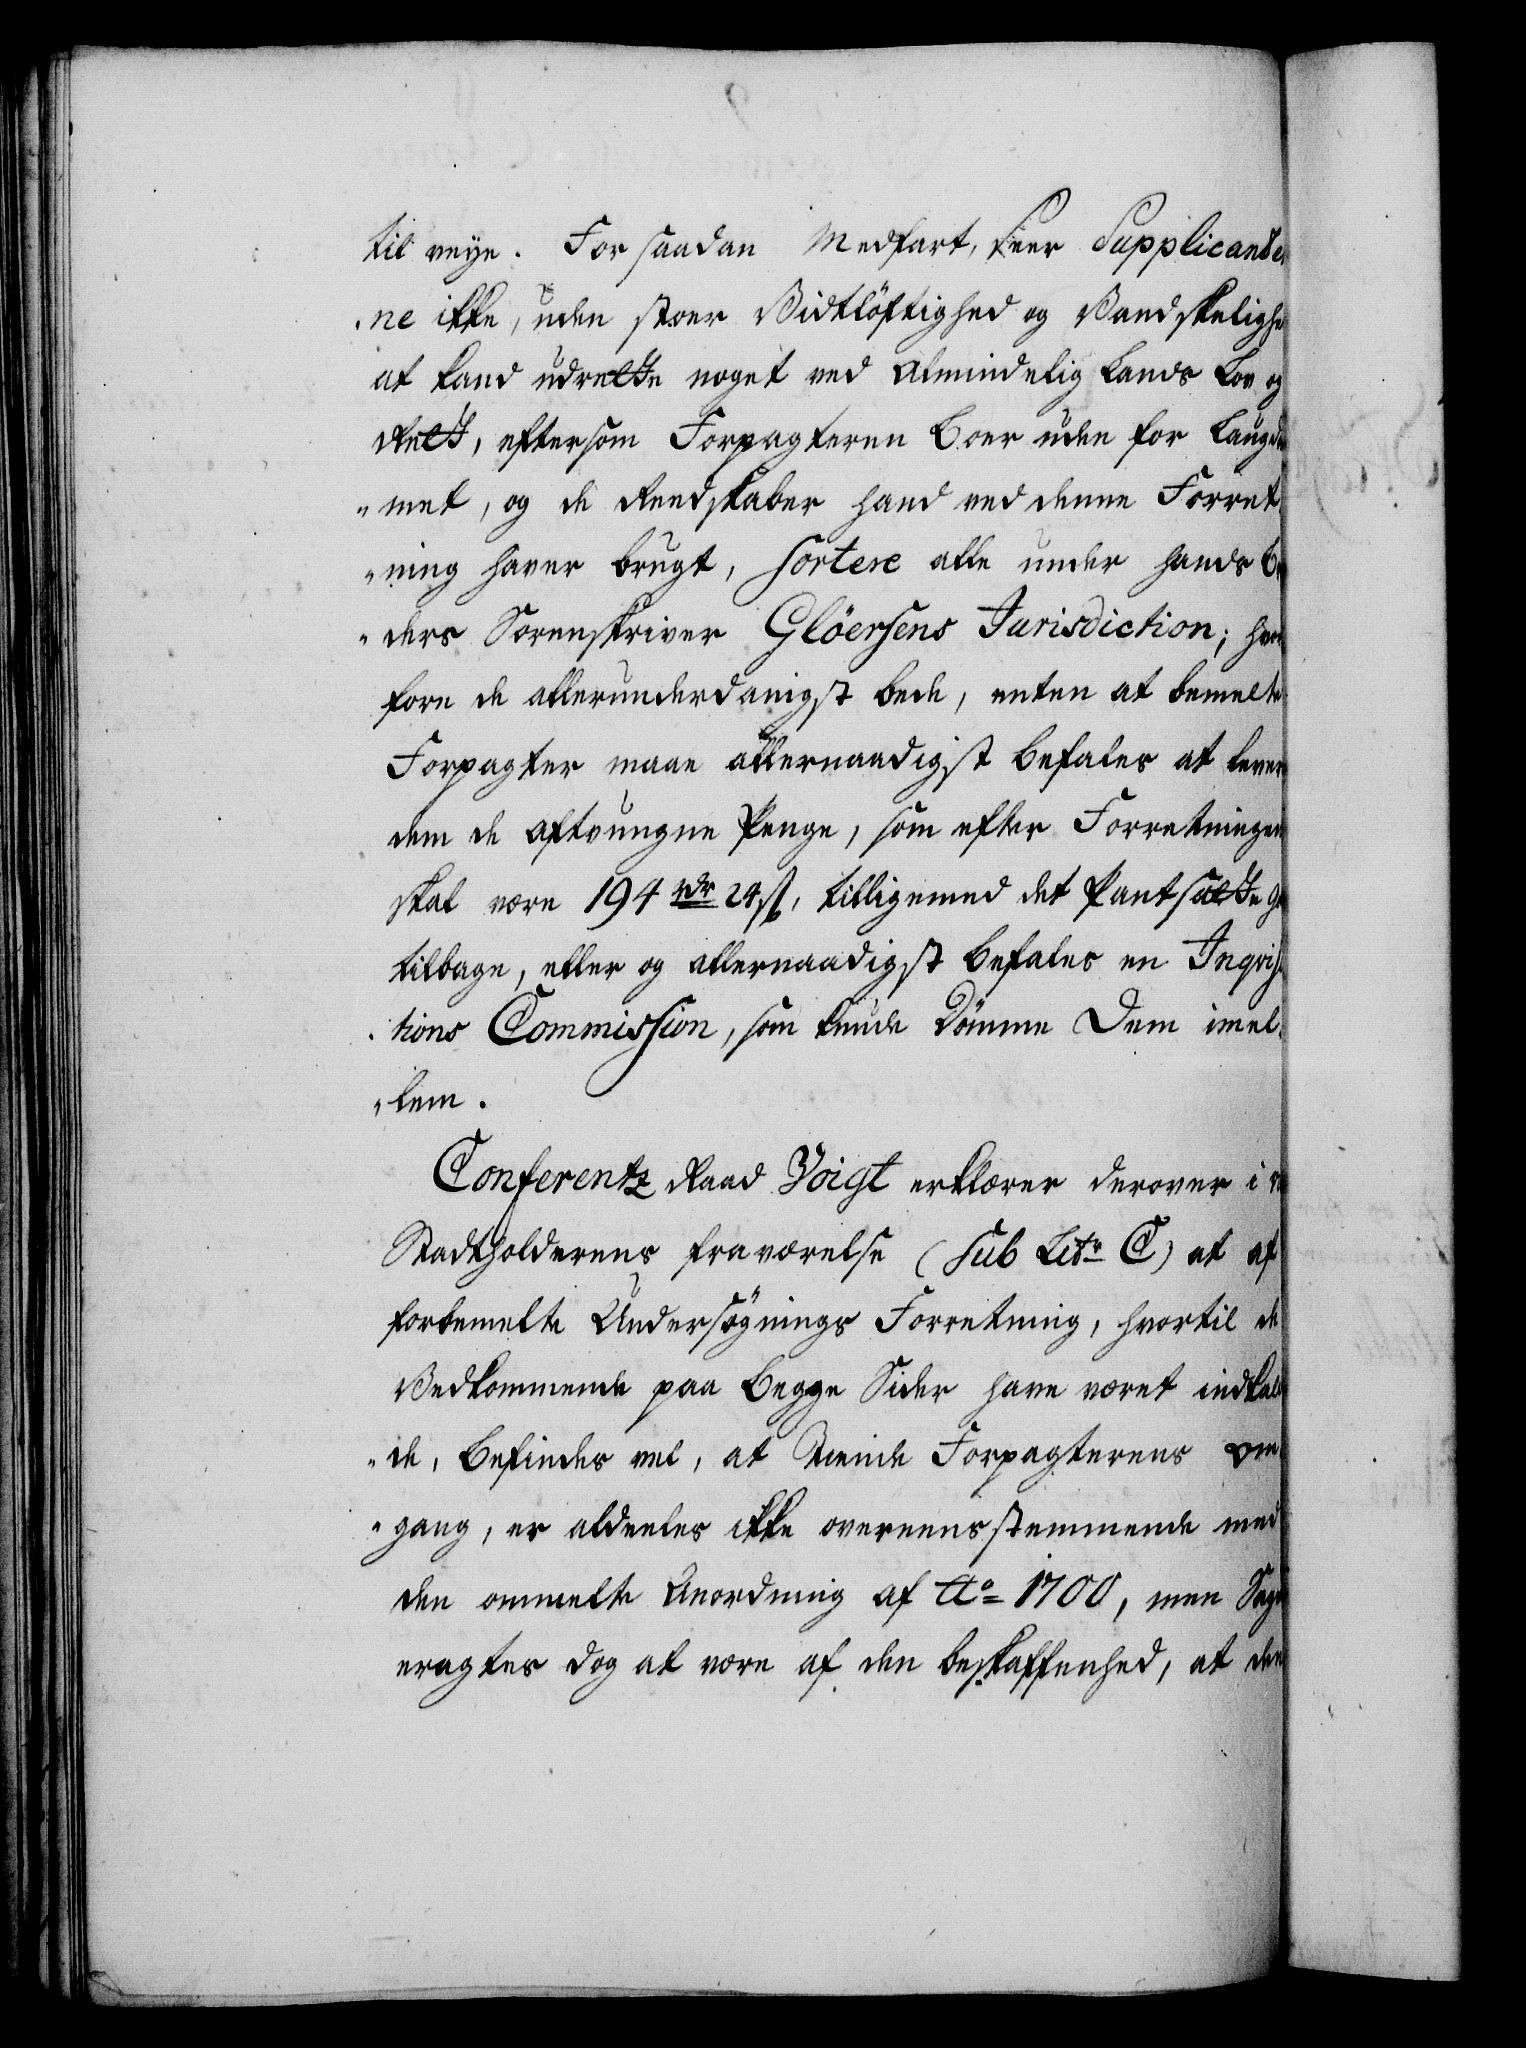 til veÿe. For saadan Medfart, seer Supplicante¬
.ne ikke, uden stoer Vidtlöftighed og Vandskelighe
at kand udrette noget ved Almindelig Lands Lov og
Rett, eftersom Forpagteren Boer uden for Laugdøm
"met, og de Reedskaber hand ved denne Forret¬
"ning haver brugt, sortere alle under hands Br
"ders Sorenskriver Glöersens Jurisdiction; hvor
fore de allerunderdanigst bede, enten at bemelte
Forpagter maae allernaadigst befales at levere
dem de aftvungne Penge, som efter Forretningen
skal være 194 rdr 24 s, tilligemed det Pantsatte
tilbage, eller og allernaadigst befales en Inqvisi
.tions Commission, som kunde Dömme Dem imel¬
"lem.
Conferentz Raad Voigt erklærer derover i
Stadtholderens fraværelse (sub Litr C) at af
forbemelte Undersøgnings Forretning, hvortil de
Vedkommende paa Begge Sider have været indkal
"de, befindes vel, at Tiende Forpagterens om
"gang, er aldeeles ikke overeensstemmende med
den ommelte Anordning af Ao 1700, men Sagen
eragtes dog at være af den beskaffenhed, at den